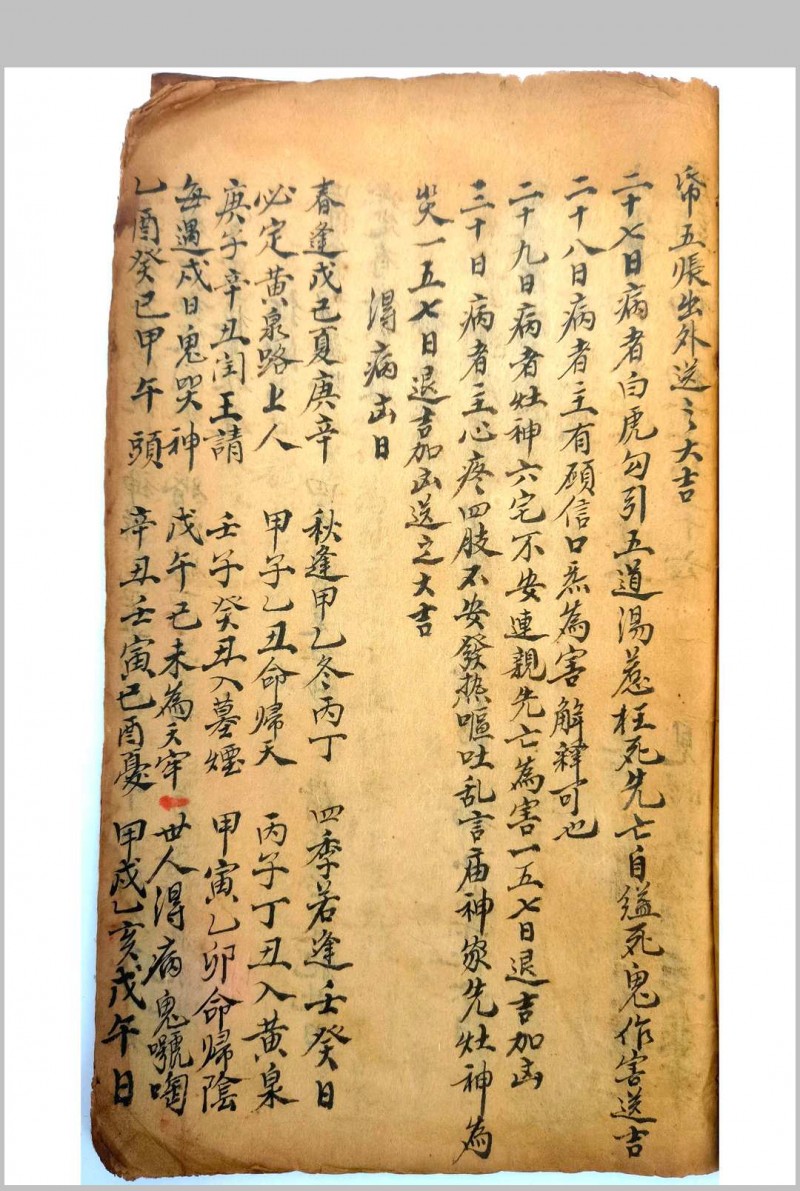 帋五張出外送之大吉
二十七日病者白虎勾引五道湯惹枉死先亡自縊死鬼作害送吉
二十八日病者主有願信口為害解釋可也
二十九日病者灶神六宅不安連親先亡為害一五七日退吉加凶
三十日病者主心疼四肢不安發热嘔吐乱言庙神家先灶神為
災一五七日退吉加凶送之大吉
得病凶日
春逢戊己夏庚辛 秋逢甲乙冬丙丁 四季若逢壬癸日
必定黄泉路上人 甲子乙丑命歸天 丙子丁丑入黄泉
庚子辛丑閆王請 壬子癸丑入墓煙 甲寅乙卯命歸陰
每遇戌日鬼哭神 戊午己未為天牢 世人得病鬼號啕
乙酉癸巳甲午頭 辛丑壬寅己酉憂 甲戌乙亥戊午日